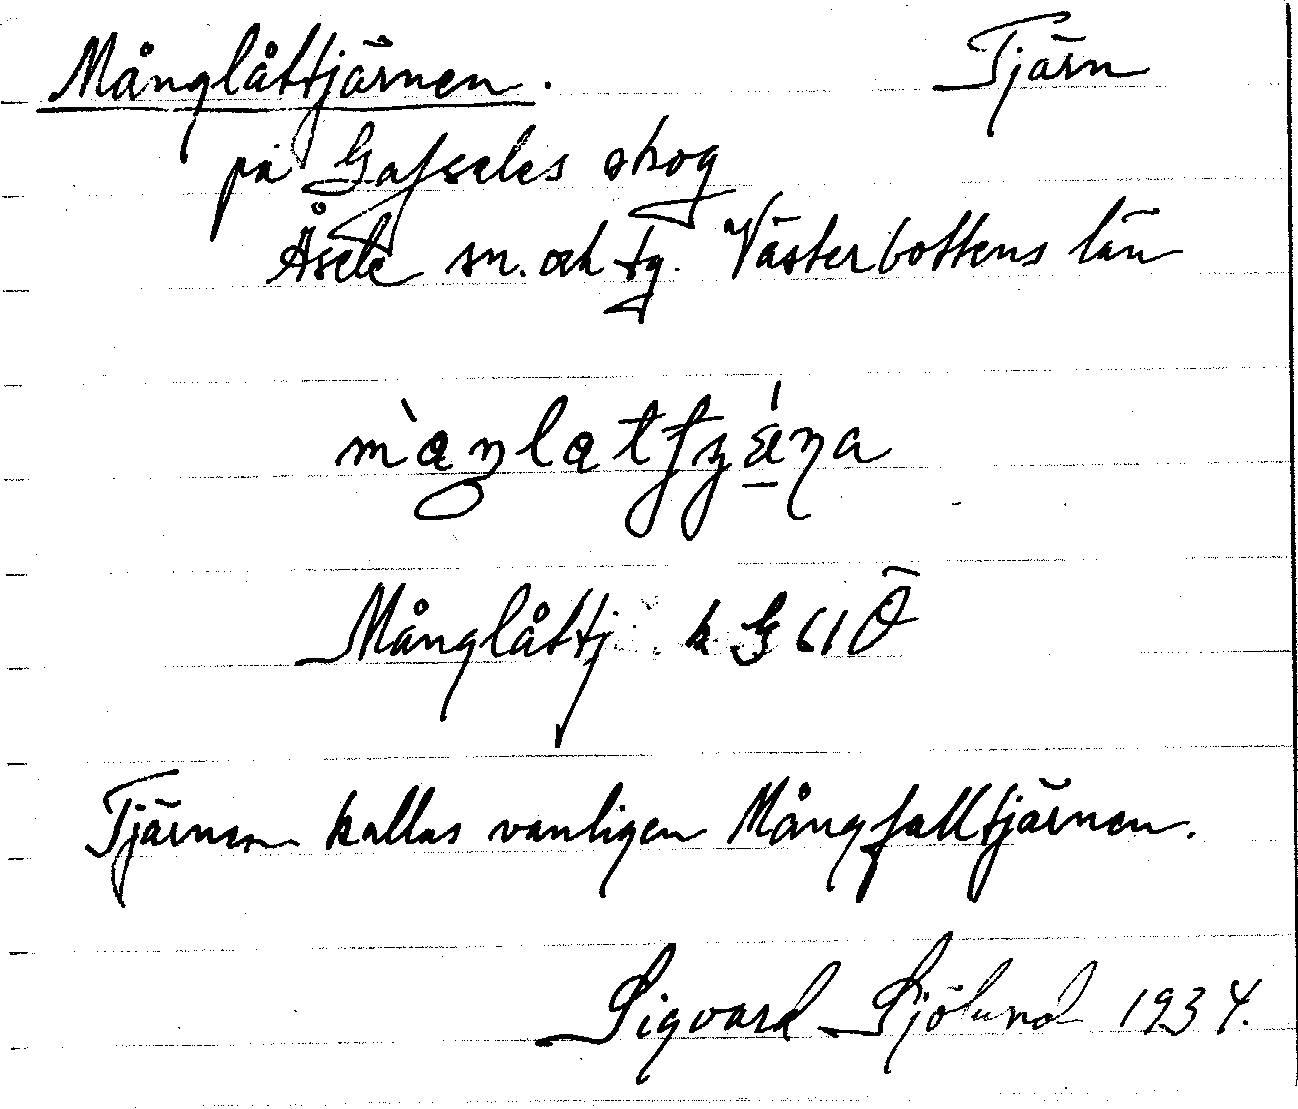 Månglåttjärnen. Tjärn
på Gafseles skog
Åsele sn. och tg. Västerbottens län
Månglåttj k G 61 Ö
Tjärnen kallas vanligen Mångfalltjärnen.
Sigvard Sjölund 1934.